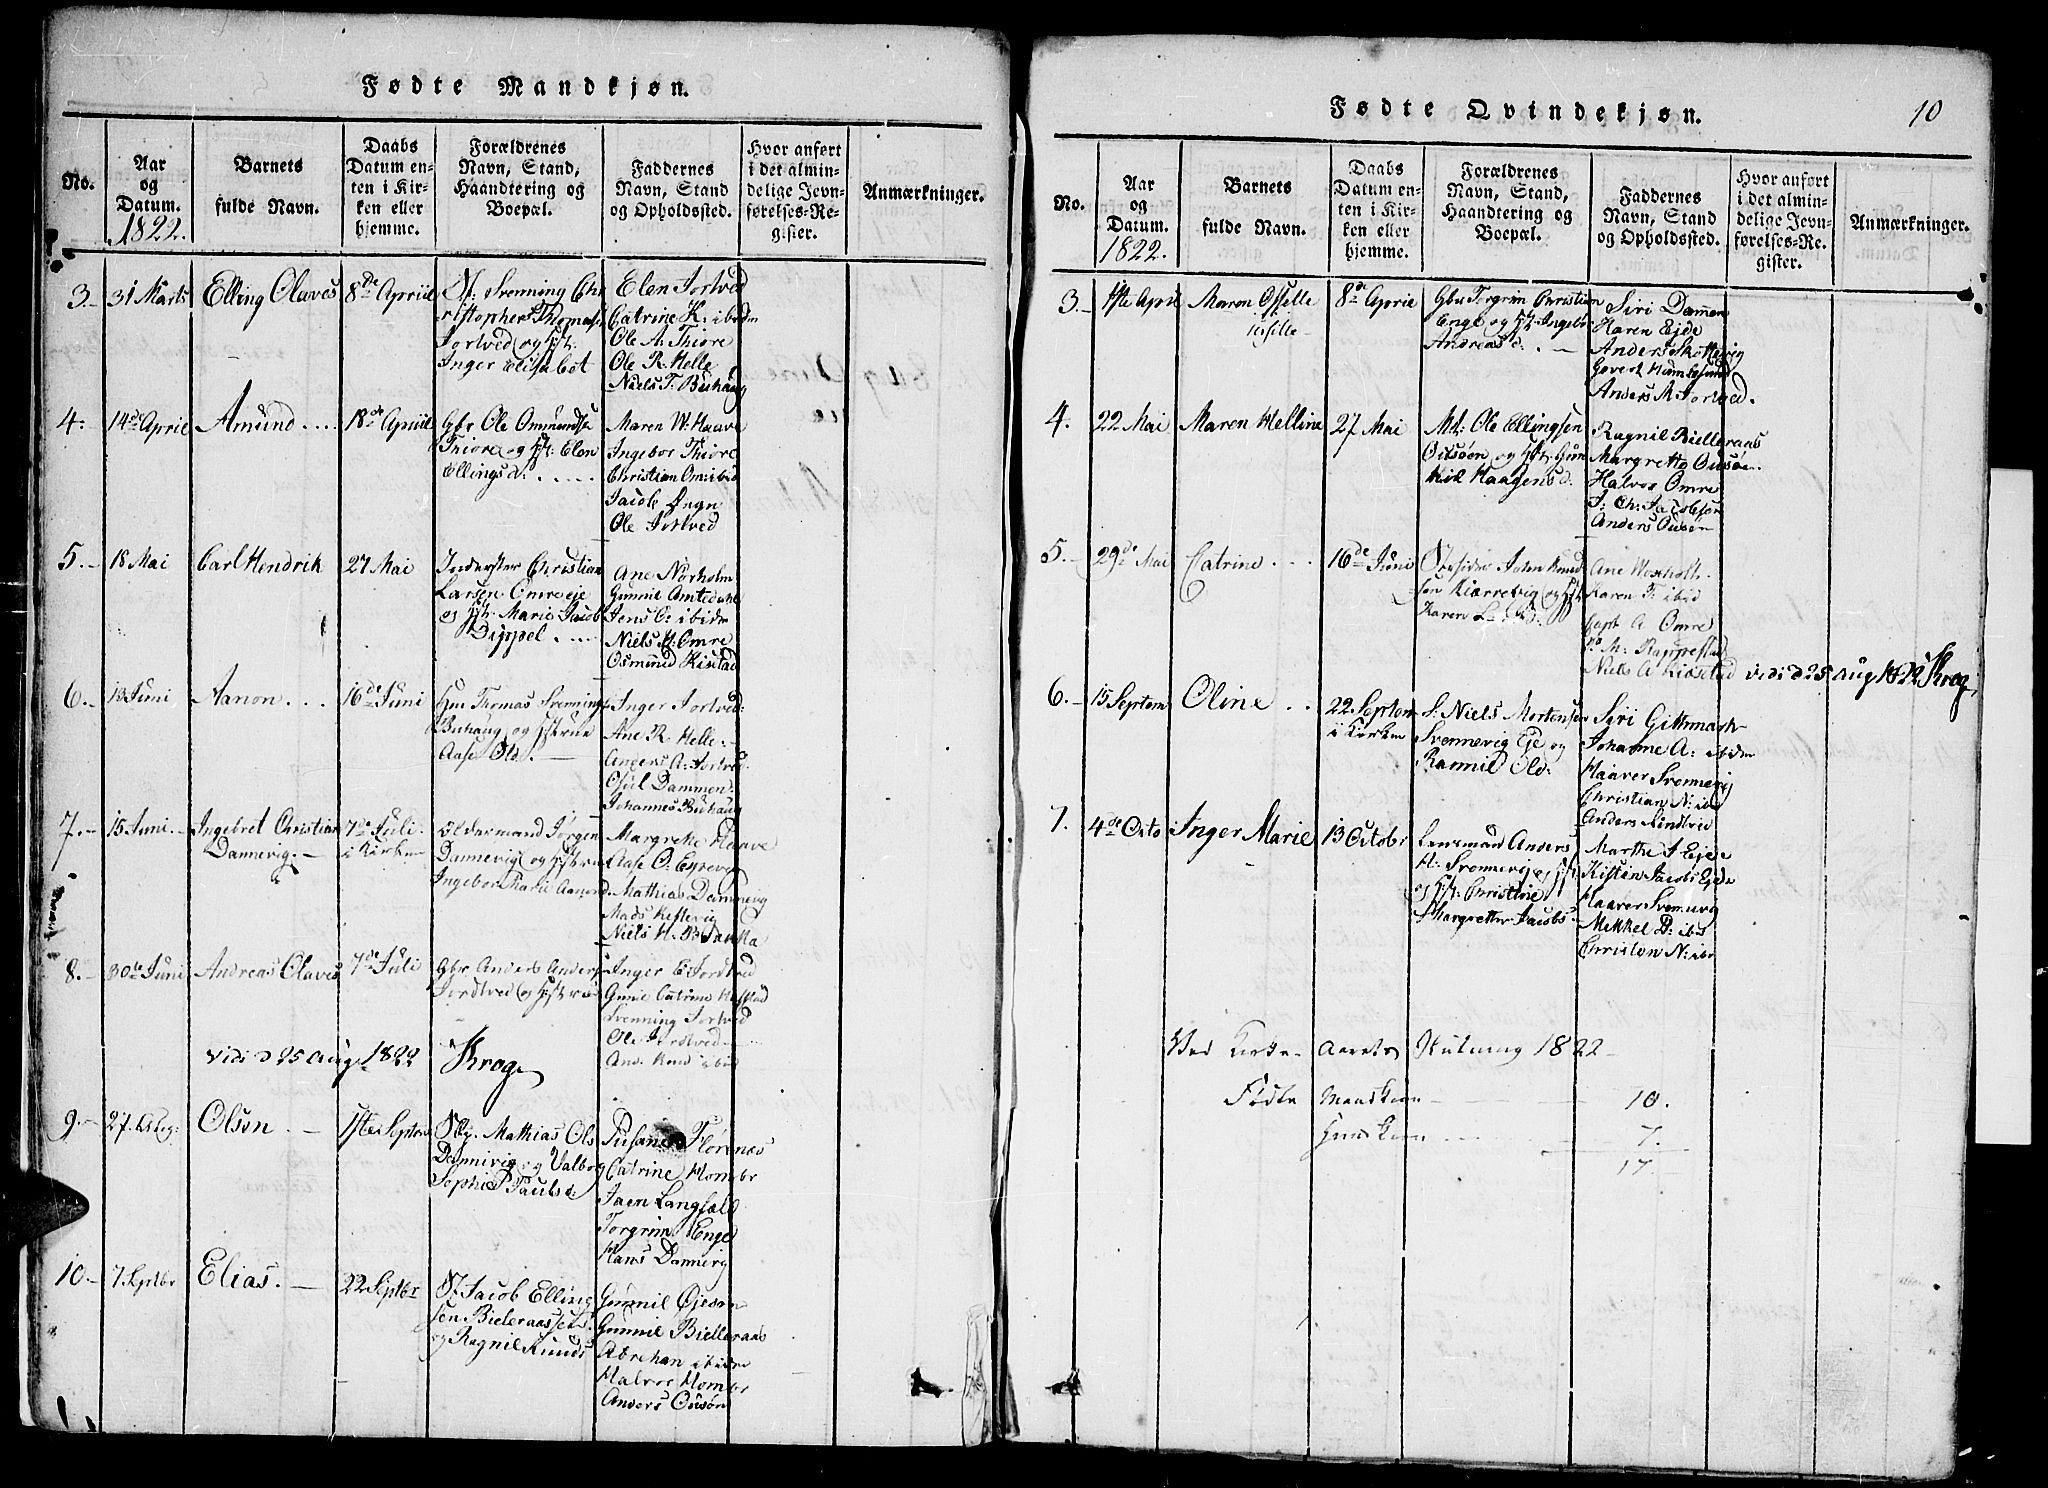 Fødte Mandkjøn.
No.
Aar
og
Datum.
1822.
Barnets
fulde Navn.
Daabs
Datum en-
ten i Kir-
ken eller
hjemme.
Forældrenes
Navn, Stand,
Haandtering og
Boepæl.
Faddernes
Navn, Stand
og Opholdssted.
Hvor anført
i det almin-
delige Jevn-
førelses-Re-
gister.
Anmærkninger.
3.
31 Marts
Elling Olaves
8de Apriil
Svenning Ch
ristopher Thomass
Jortved og
Inger Elisabet
Elen Jortved
Catrine K. ibidm
Ole A. Thiøre
Ole R. Helle
Niels T. Buhaug
4.
14de April
Amund
18de Apriil
Gbr Ole Ommundse
Thiøre og Elen
Ellingsd.
Maren W. Haave
Ingebor Thiøre
Christian Om: ibid
Jacob Engn
Ole Jortved
5.
18 Mai
Carl Hendrik
27 Mai
Inderster Christian
Larsen Omreeie
og Marie Jacob
Dippel
Ane Norholm
Gunnil Amtedahl
Jens C: ibidm
Niels H: Omre
Osmund Kistad
6.
13 Juni
Aanon
16de Juni
Thomas Svennings
Buhaug og
Aase Old.
Inger Jortved
Ane R. Helle
Anders A. Jortved
Osul Dammen
Johannes Buhaug
7.
15 Juni
Ingebret Christian
Dannevig.
7de Juli
i Kirken
Oldermand Jørgen
Dannevig og
Ingebor Marie Aanond
Margrethe Haave
Aase O. Eyrevig
Mathias Dannevig
Mads Keftevig
Niels H.
8.
30de Juni
Andreas Olaves
7de Juli
Gbr Anders Anders
Jordtved og
Inger E Jordtved
Gunie Catrine Hafstad
Svenning Jortved
Ole Jordtved
And. Knud ibid
Vidi d 25 Aug. 1822
Krog
9.
27. Aug:
Olson
1ste Septem
Mathias Ols
Dannivig og Valbor
Sophie Pauls d
Susane Florenæs
Catrine Hombr
Jaen Langfæld
Torgrim Enge
Hans Dannevig
10.
7 Septbr
Elias.
22 Septbr
Jacob Elling
sen Bieleraassen
og Ragnil Knuds
Gunnil Øjesøn
Gunnil Bielleraas
Abrehan ibidm
Halvor Hombr
Anders Ousøn
Fødte Qvindekjøn.
10
No.
Aar
og
Datum.
1822.
Barnets
fulde Navn.
Daabs
Datum en-
ten i Kir-
ken eller
hjemme.
Forældrenes
Navn, Stand,
Haandtering og
Boepæl.
Faddernes
Navn, Stand
og Opholdssted.
Hvor anført
i det almin-
delige Jevn-
førelses-Re-
gister.
Anmærkninger.
3.
1ste April
Maren Osselle
8de Aprie
Gbr Torgrim Christian
Enge og Ingebor
Andreas d.
Siri Dammen
Karen Ejde
Anders Skottevig
Govert Humlesund
Anders M Jortved.
4.
22 Mai
Maren Helline
27 Mai
Md: Ole Ellingsen
Ousøen og Gun
hild Haagens d.
Ragnil Bielleraas
Margrette Ousøen
Halvor Omre
J. Ch: Jacobsen
Anders Ousøn
5.
29de Mai
Catrine
16de Juni
John Knud
sen Kiærrevig og
Karen L
Ane Woxholt
Karen T: ibid
Capt A Omre
M: Rappestad
Niels A Kiøstad
vidi d 25 Aug 1822 Krog
6.
15 Septem
Oline
22 Septem
i Kirken
S. Niels Mortensen
Svennevig Eje og
Rannie Old.
Siri Githmark
Johanne A: ibidm
Haaver Svennevig
Christian N: ibid
Anders Nindtvie
7.
4de Octo
Inger Marie
13 Octobr
Lensmand Anders
H: Svennevig og
og Christine
Margrette Jacobs
Marthe J Ejde
Kisten Jacobs Ejde
Haaver Svennevig
Mekkel D: ibid
Christen N: ibi
Ved Kirke Aarets Slutning 1822
Fødte Mandkiøn 10.
7.
17